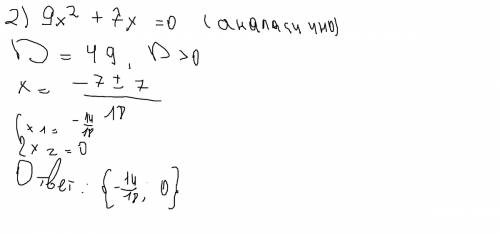 2) 9x² + 7x = 0 (аналогично)
D = 49, D > 0
x = (-7 ± 7) / 18
{ x1 = -14/18
x2 = 0
Ответ: {-14/18; 0}